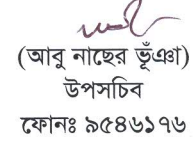 (আবু নাছের ভূঁঞা)
উপসচিব
ফোনঃ ৯৫৪৬১৭৬